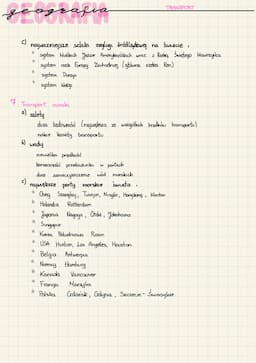 GEOGRAFIA
geografia
TRANSPORT
c) najważniejsze szlaki żeglugi śródlądowej na świecie:
system Wielkich Jezior Amerykańskich wraz z Rzeką Świętego Wawrzyńca
system rzek Europy Zachodniej (główna rzeka Ren)
system Dunaju
system Wołgi
Transport morski
a) zalety
duża ładowność (największa ze wszystkich środków transportu)
niskie koszty transportu
b) wady
niewielka prędkość
konieczność przeładunku w portach
duże zanieczyszczenie wód morskich
c) największe porty morskie świata:
Chiny Szanghaj, Tiencin, Ningbo, Hongkong, Kanton
Holandia Rotterdam
Japonia Nagoja, Chiba, Jokohama
Singapur
Korea Południowa Pusan
USA Huston, Los Angeles, Houston
Belgia Antwerpia
Niemcy Hamburg
Kanada Vancouver
Francja Marsylia
Polska Gdańsk, Gdynia, Szczecin - Świnoujście